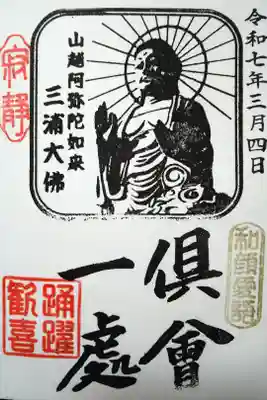 令和七年三月四日
山越阿弥陀如来
三浦大佛
寂静
俱會
一處
和顔愛語
踊躍
歓喜